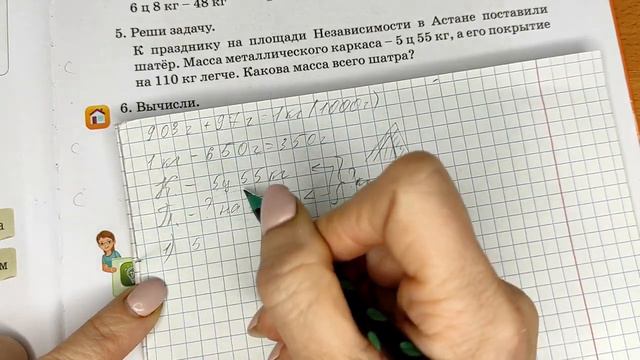 6 ц 8 кг – 48 кг
5. Реши задачу.
К празднику на площади Независимости в Астане поставили
шатёр. Масса металлического каркаса – 5 ц 55 кг, а его покрытие
на 110 кг легче. Какова масса всего шатра?
6. Вычисли.
903г + 97г = 1кг (1000г)
1кг – 650г = 350г
К – 5ц 55кг
П – ? на
1) 5
а
м